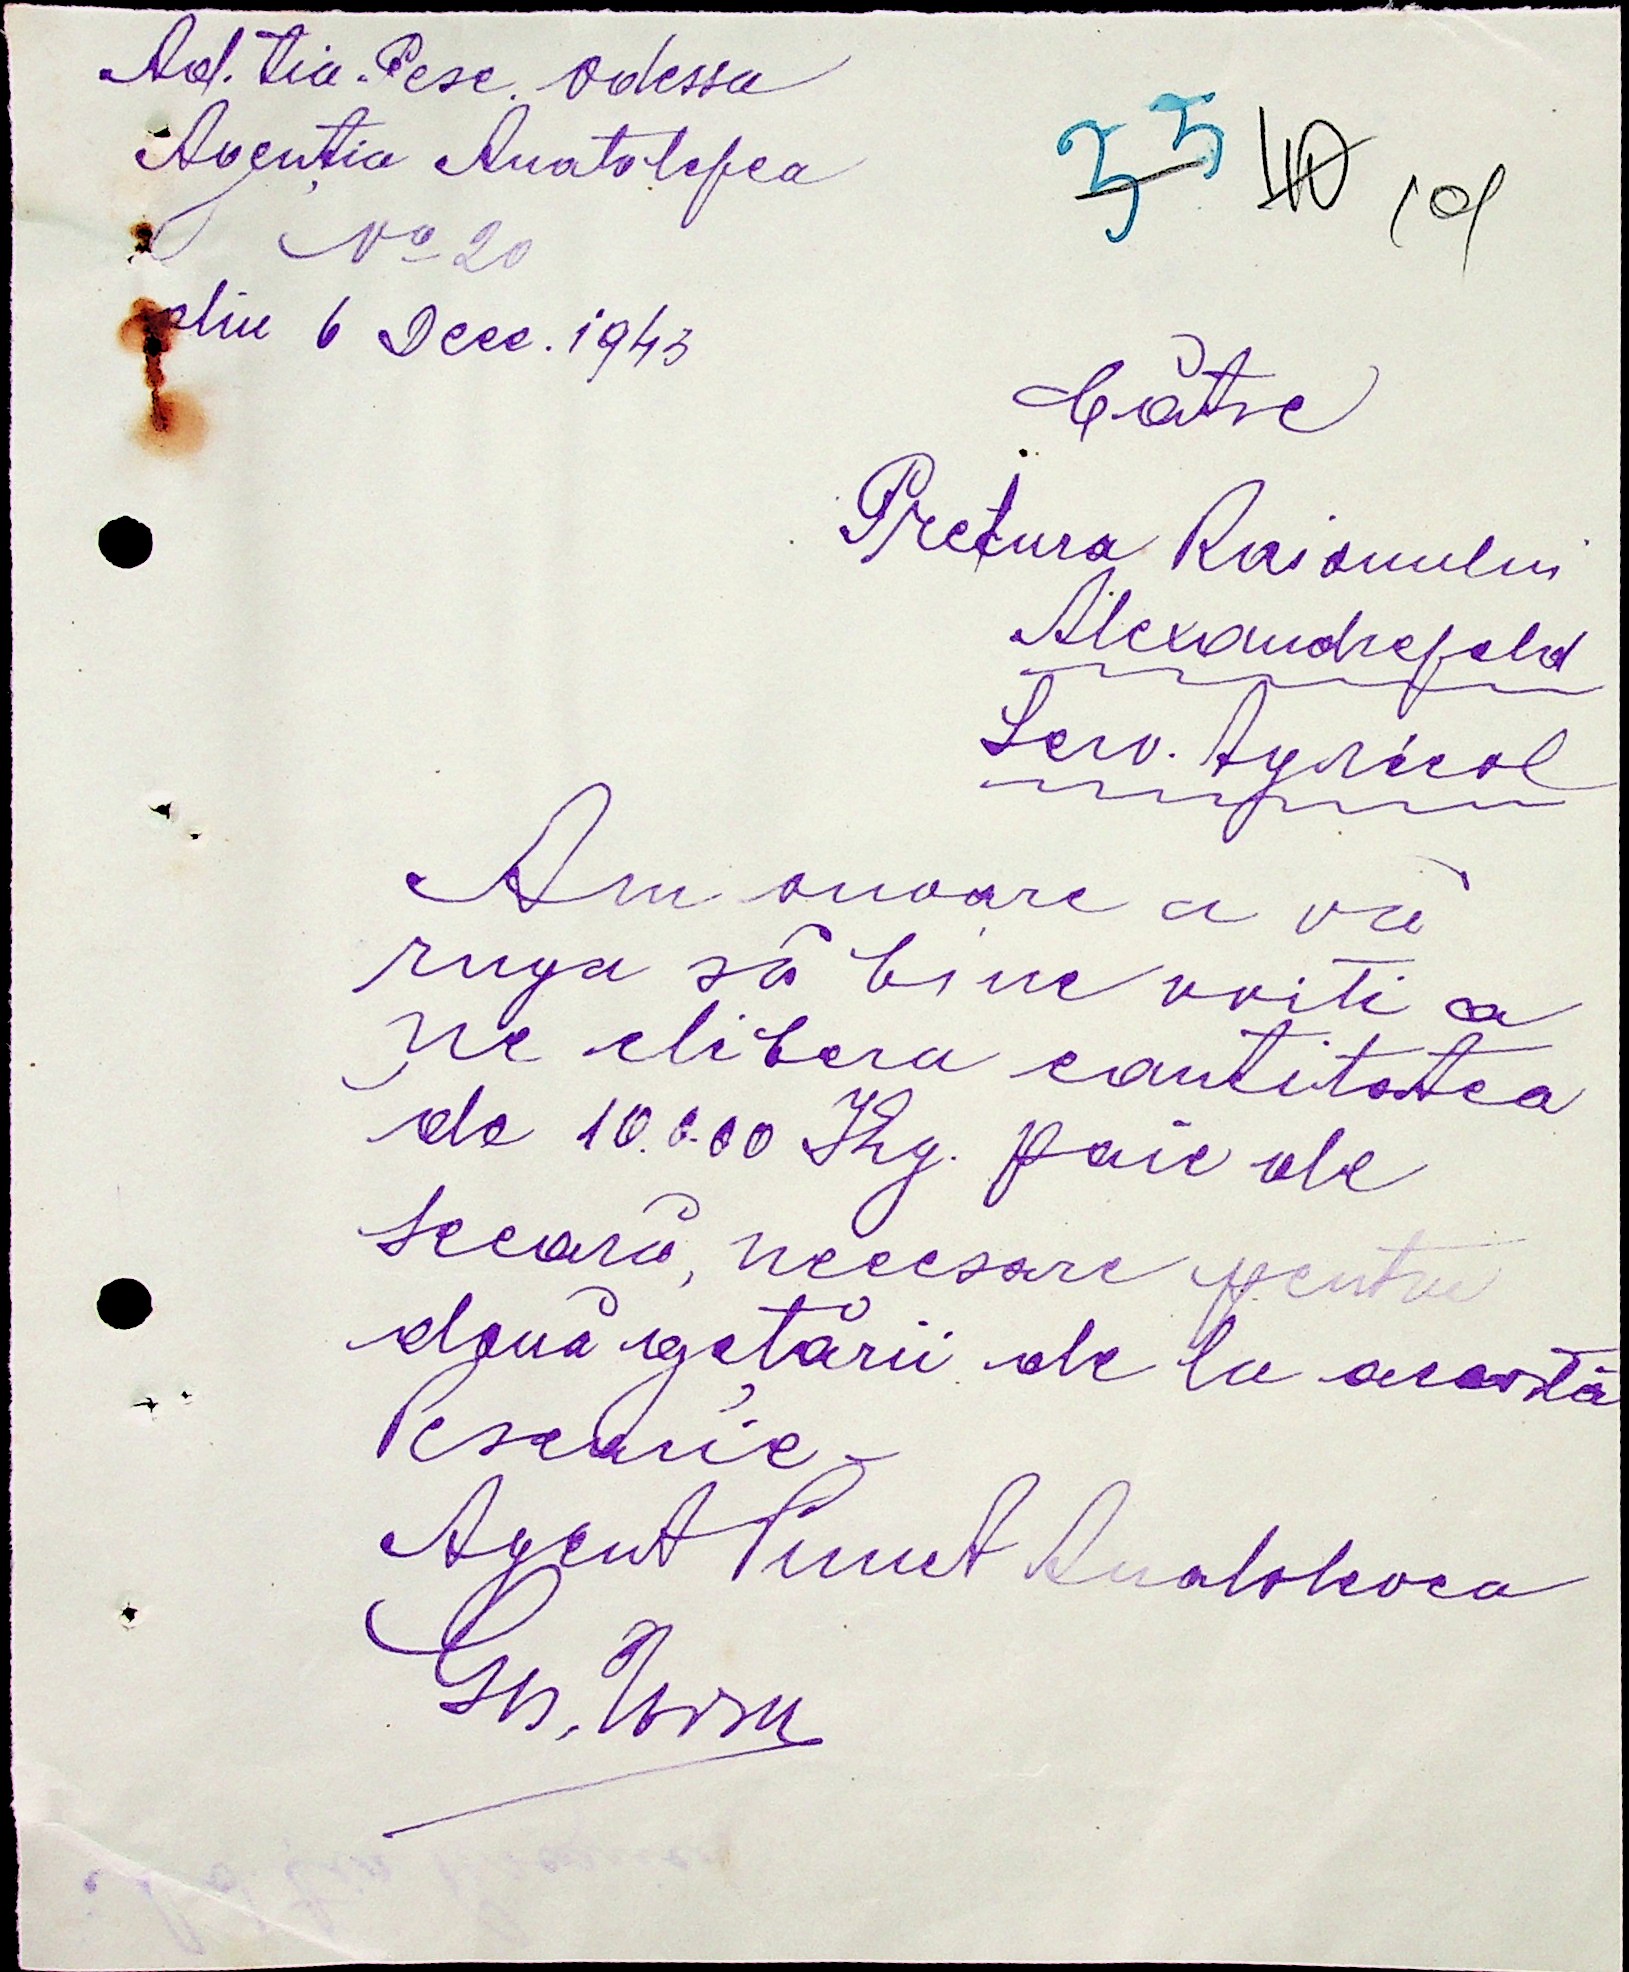 Ad. tia. Pesc. Odessa
Agenția Anatolefca
No 20
din 6 Dece. 1943
35 10 101
Cätre
Pretura Raionului
Alexandrefeld
Serv. Agricol
Am onoare a vă
ruga să bine voiti a
ne elibera cantitatea
de 10.000 Kg. paie de
secară, necesare pentru
două gețării de la această
Pescarie-
Agent Punct Anatolevca